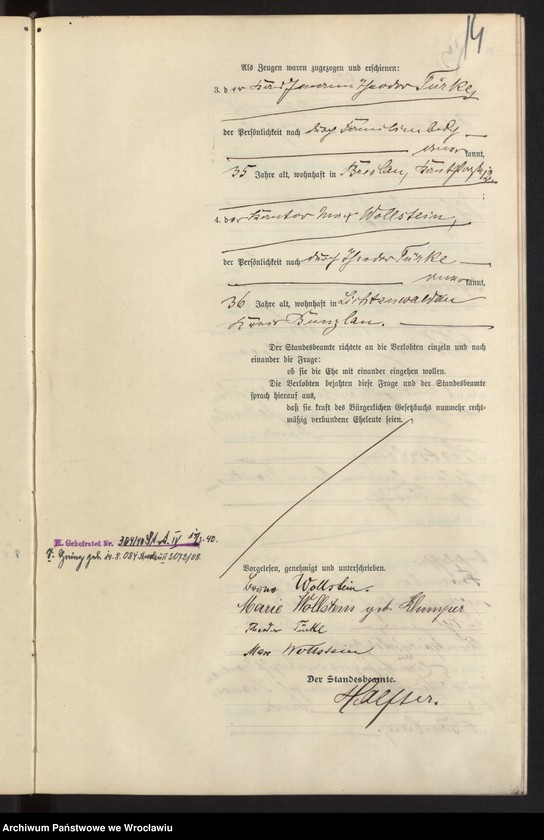 14
Als Zeugen waren zugezogen und erschienen:
3. der Kaufmann Theodor Türke,
der Persönlichkeit nach durch Familienbuch
anerkannt,
35 Jahre alt, wohnhaft in Breslau,
4. der Kantor Max Wollstein,
der Persönlichkeit nach durch Theodor Türke
anerkannt,
36 Jahre alt, wohnhaft in Lichtenwaldau
Kreis Bunzlau.
Der Standesbeamte richtete an die Verlobten einzeln und nach
einander die Frage:
ob sie die Ehe mit einander eingehen wollen.
Die Verlobten bejahten diese Frage und der Standesbeamte
sprach hierauf aus,
daß sie kraft des Bürgerlichen Gesetzbuchs nunmehr recht-
mäßig verbundene Eheleute seien.
K. Geheiratet Nr. St. A. IV 40.
geb. 14.8.08 2072/08.
Vorgelesen, genehmigt und unterschrieben.
Wollstein.
Marie Wollstein geb.
Theodor Türke
Max Wollstein
Der Standesbeamte.
Halfter.
Archiwum Państwowe we Wrocławiu